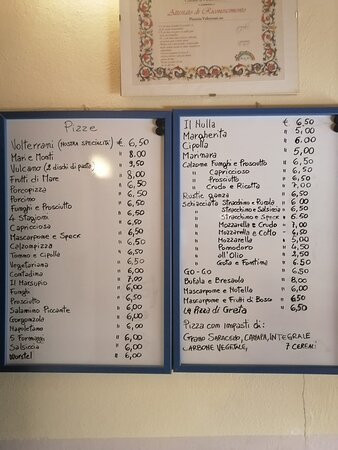 Attestato di Riconoscimento
Pizze
Volterrani (NOSTRA SPECIALITÀ) € 6,50
Mari e Monti " 8,00
Vulcano (2 dischi di pasta) " 9,50
Frutti di Mare " 8,00
Porcopizza " 6,50
Porcino " 6,50
Funghi e Prosciutto " 6,50
4 Stagioni " 6,50
Capricciosa " 6,50
Mascarpone e Speck " 6,50
Calzompizza " 6,50
Tonno e Cipolla " 6,50
Vegetariana " 6,50
Contadina " 6,00
Il Marsupio " 7,00
Funghi " 6,00
Prosciutto " 6,50
Salamino Piccante " 6,00
Gorgonzola " 6,00
Napoletano " 6,00
5 Formaggi " 6,00
Salsiccia " 6,00
Wurstel " 6,00
Il Nulla € 6,50
Margherita " 5,00
Cipolla " 6,00
Marinara " 5,00
Calzone Funghi e Prosciutto " 6,50
" Capriccioso " 6,50
" Prosciutto " 6,50
" Crudo e Ricotta " 7,00
Rustic ganza " 6,50
Schiacciata Stracchino e Rucola " 6,00
" Stracchino e Salsiccia " 6,50
" Stracchino e Speck " 6,50
" Mozzarella e Crudo " 7,00
" Mozzarella e Cotto " 6,50
" Mozzarella " 5,00
" Pomodoro " 4,50
" all'Olio " 2,50
" Gota e Fontina " 6,50
Go-Go " 6,50
Bufala e Bresaola " 8,00
Mascarpone e Nutella " 6,00
Mascarpone e Frutti di Bosco " 6,50
La Pizza di Greta " 6,50
Pizza con impasti di:
GRANO SARACENO, CANAPA, INTEGRALE
CARBONE VEGETALE, 7 CEREALI